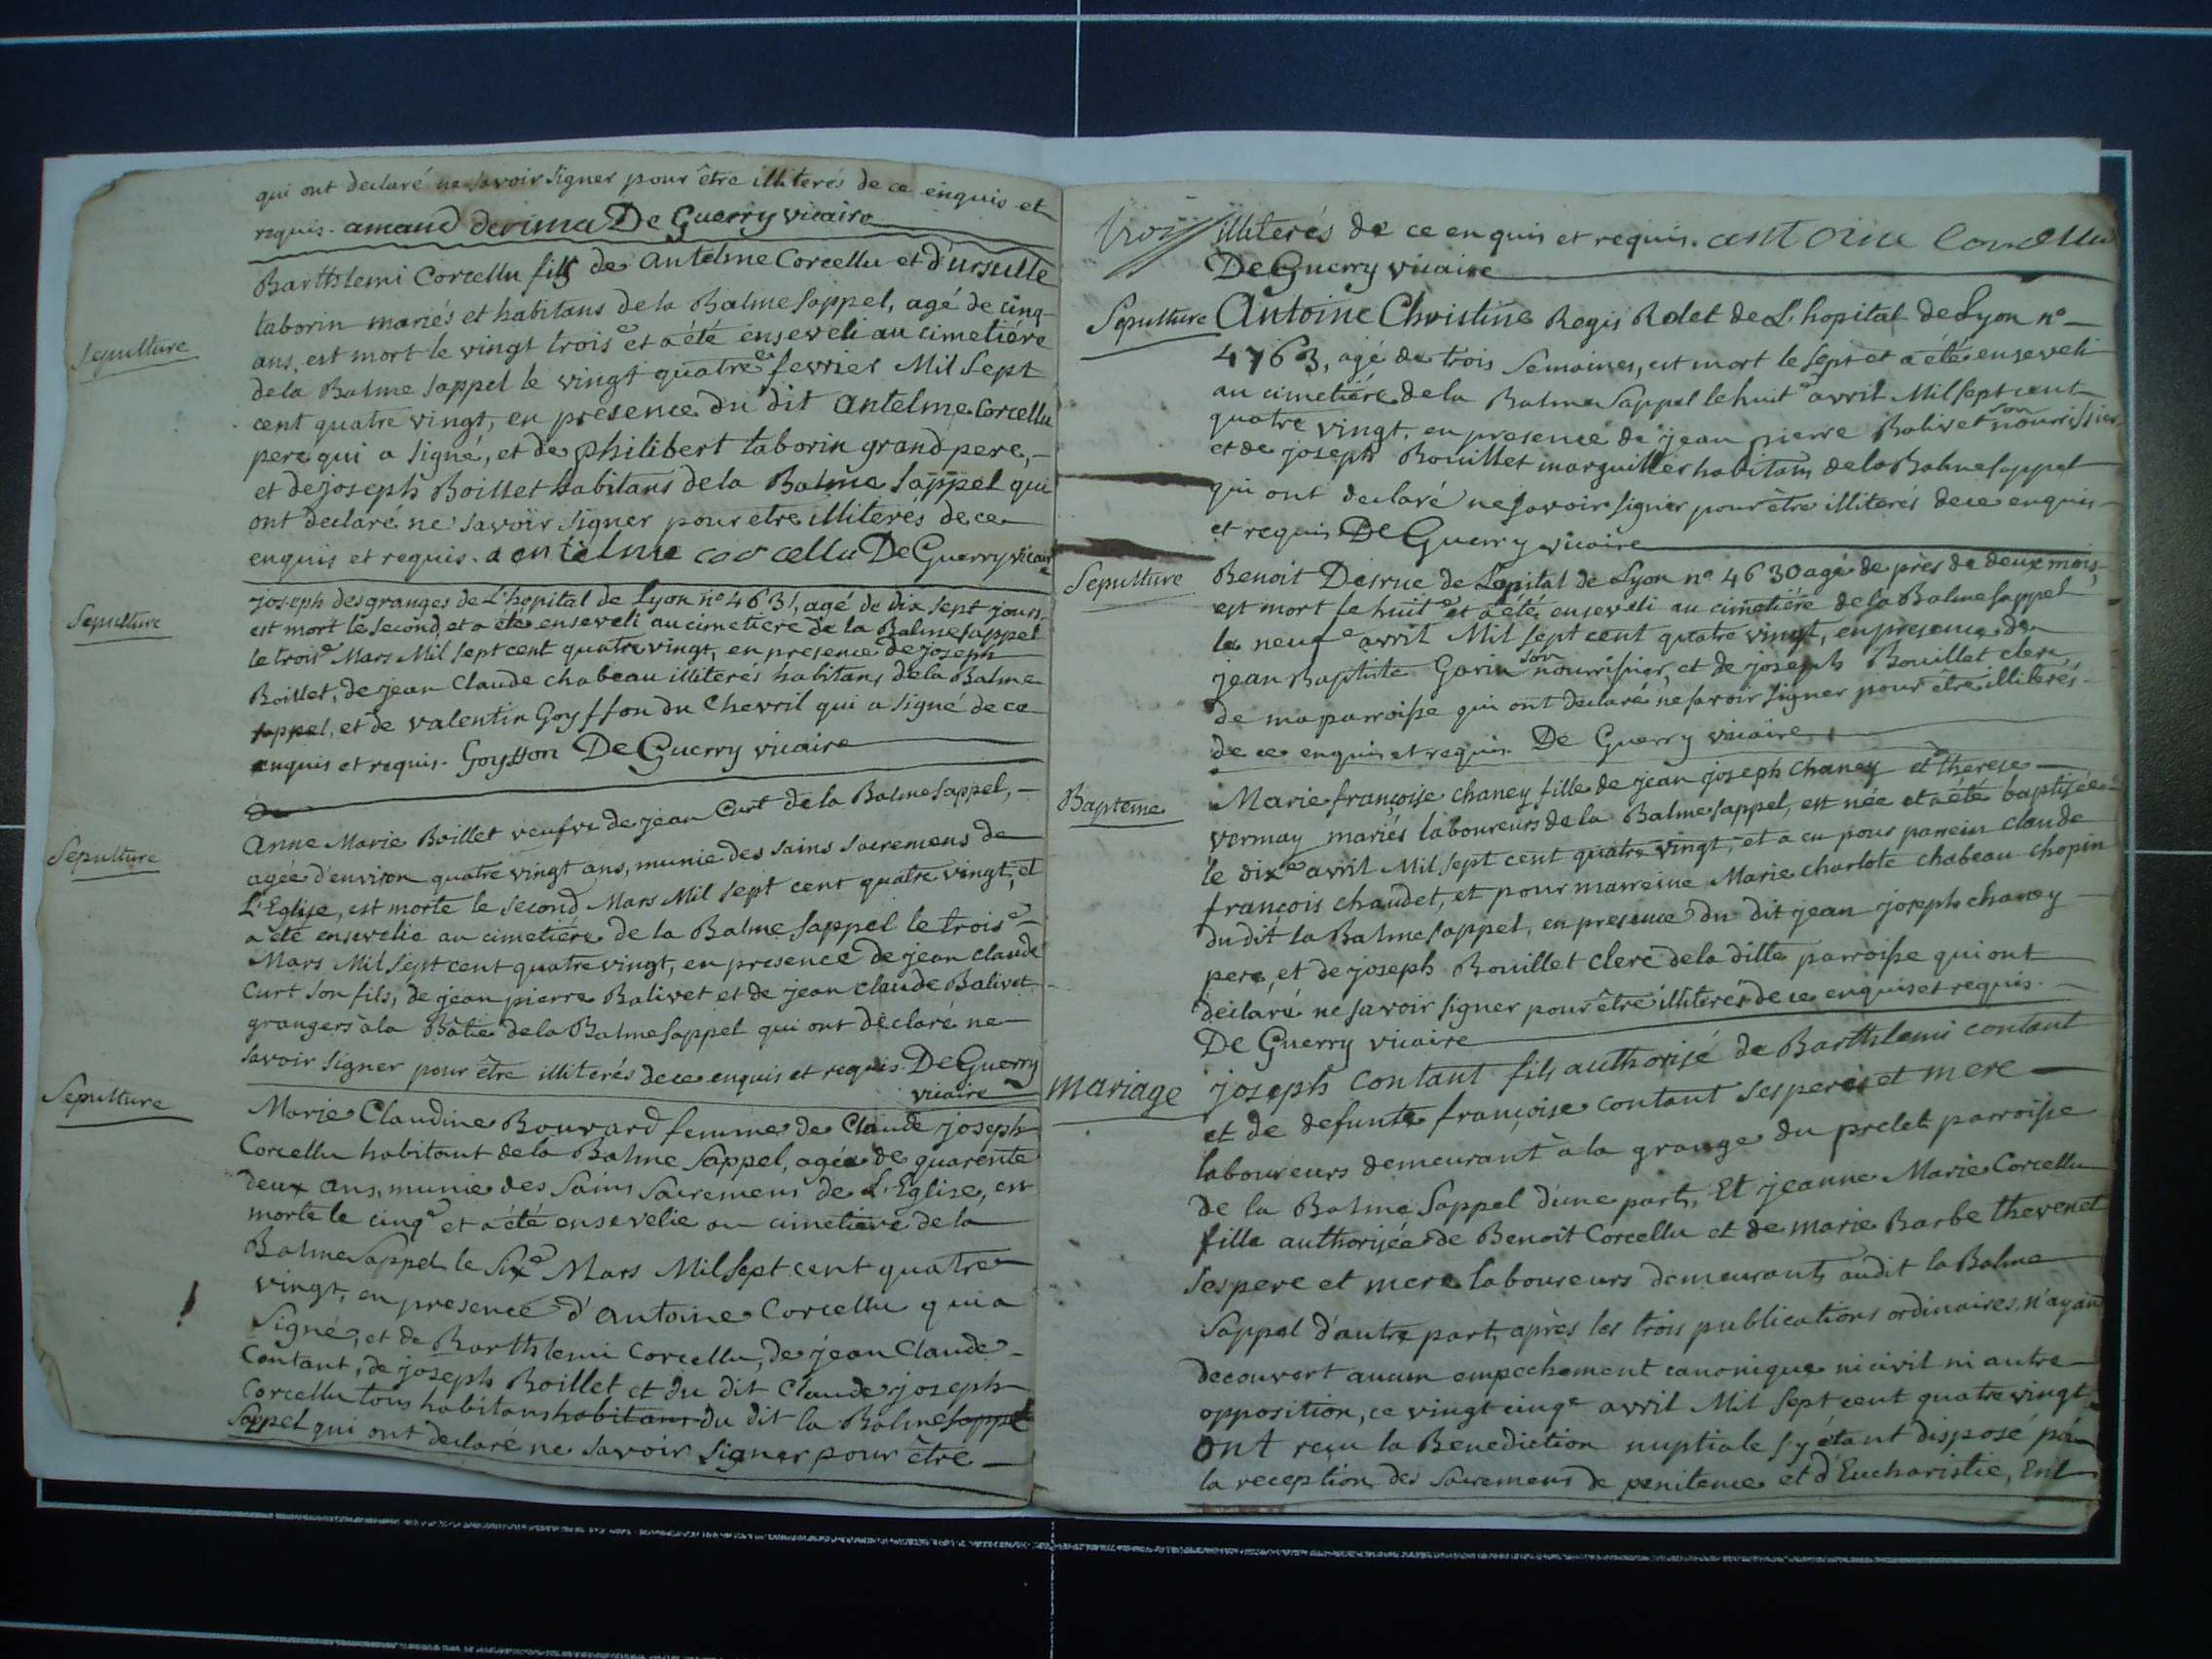 qui ont declaré ne savoir signer pour être illiterés de ce enquis et
requis. amand derima De Guerry vicaire
Sepulture
Barthlemi Corcellu fils de antelme Corcellu et d'ursulle
taborin mariés et habitans de la Balme sappel, agé de cinq
ans, est mort le vingt troise et a été enseveli au cimetiére
de la Balme sappel le vingt quatree fevrier Mil Sept
cent quatre vingt, en presence du dit antelme Corcellu
pere qui a signé, et de philibert taborin grand pere,
et de joseph Boillet habitans de la Balme sappel qui
ont declaré ne savoir signer pour etre illiterés de ce
enquis et requis. antelme corcellu De Guerry vicaire
Sepulture
joseph desgranges de L'hopital de Lyon n° 4631, agé de dix sept jours
est mort le second, et a été enseveli au cimetiere de la Balme sappel
le troise Mars Mil sept cent quatre vingt, en presence de joseph
Boillet, de jean Claude chabeau illiterés habitans de la Balme
sappel, et de valentin Goyffon du Chevril qui a signé de ce
enquis et requis. Goyffon De Guerry vicaire
De
Sepulture
anne Marie Boillet veufve de jean Curt de la Balme sappel,
agée d'environ quatre vingt ans, munie des sains sacremens de
L'Eglise, est morte le second Mars Mil sept cent quatre vingt, et
a été ensevelie au cimetiére de la Balme sappel le troise
Mars Mil sept cent quatre vingt, en presence de jean claude
Curt son fils, de jean pierre Balivet et de jean claude Balivet
grangers à la Bâtie de la Balme sappel qui ont déclaré ne
savoir signer pour être illiterés de ce enquis et requis. De Guerry
vicaire
Sepulture
Marie Claudine Bouvard femme de Claude joseph
Corcellu habitant de la Balme Sappel, agée de quarente
deux ans, munie des sains sacremens de L'Eglise, est
morte le cinqe et a été ensevelie au cimetiére de la
Balme sappel le sixe Mars Mil sept cent quatre
vingt, en presence d'antoine Corcellu qui a
signé, et de Barthlemi Corcellu, de jean Claude
Contant, de joseph Boillet et du dit Claude joseph
Corcellu tous habitans habitans du dit la Balme sappel
Sappel qui ont declaré ne savoir signer pour être
trois
illiterés de ce enquis et requis. antoine Corcellu
De Guerry vicaire
Sepulture
Antoine Christine Regis Rolet de L'hopital de Lyon n°
4763, agé de trois semaines, est mort le sept et a été enseveli
au cimetiére de la Balme sappel le huite avril Mil sept cent
quatre vingt, en presence de jean pierre Balivet son nourrissier
et de joseph Bouillet marguillier habitans de la Balme sappel
qui ont declaré ne savoir signer pour être illiterés de ce enquis
et requis De Guerry vicaire
Sepulture
Benoit Desrue de Lopital de Lyon n° 4630 agé de près de deux mois,
est mort le huite et a été enseveli au cimetiére de la Balme sappel
le neufe avril Mil sept cent quatre vingt, en presence de
jean Baptiste Gavin son nourrissier, et de joseph Bouillet clerc
de ma parroisse qui ont declaré ne savoir signer pour être illiterés
de ce enquis et requis. De Guerry vicaire
Bapteme
Marie françoise chaney fille de jean joseph chaney et therese
vermay mariés laboureurs de la Balme sappel, est née et a été baptisée
le dixe avril Mil sept cent quatre vingt, et a eu pour parrein claude
françois chaudet, et pour marreine Marie charlote chabeau chopin
du dit la Balme sappel, en presence du dit jean joseph chaney
pere, et de joseph Bouillet clerc de la ditte parroisse qui ont
declaré ne savoir signer pour être illiterés de ce enquis et requis.
De Guerry vicaire
mariage
joseph contant fils authorisé de Barthlemi contant
et de defunte françoise contant ses pere et mere
laboureurs demeurant à la grange du prelet parroisse
de la Balme Sappel d'une part, Et jeanne Marie Corcellu
fille authorisée de Benoit Corcellu et de marie Barbe thevenet
ses pere et mere laboureurs demeurants audit la Balme
Sappel d'autre part, après les trois publications ordinaires, n'ayant
decouvert aucun empechement canonique ni civil ni autre
opposition, ce vingt cinqe avril Mil sept cent quatre vingt
ont reçu la Benediction nuptiale s'y étant disposé par
la reception des sacremens de penitence et d'Eucharistie, Ent